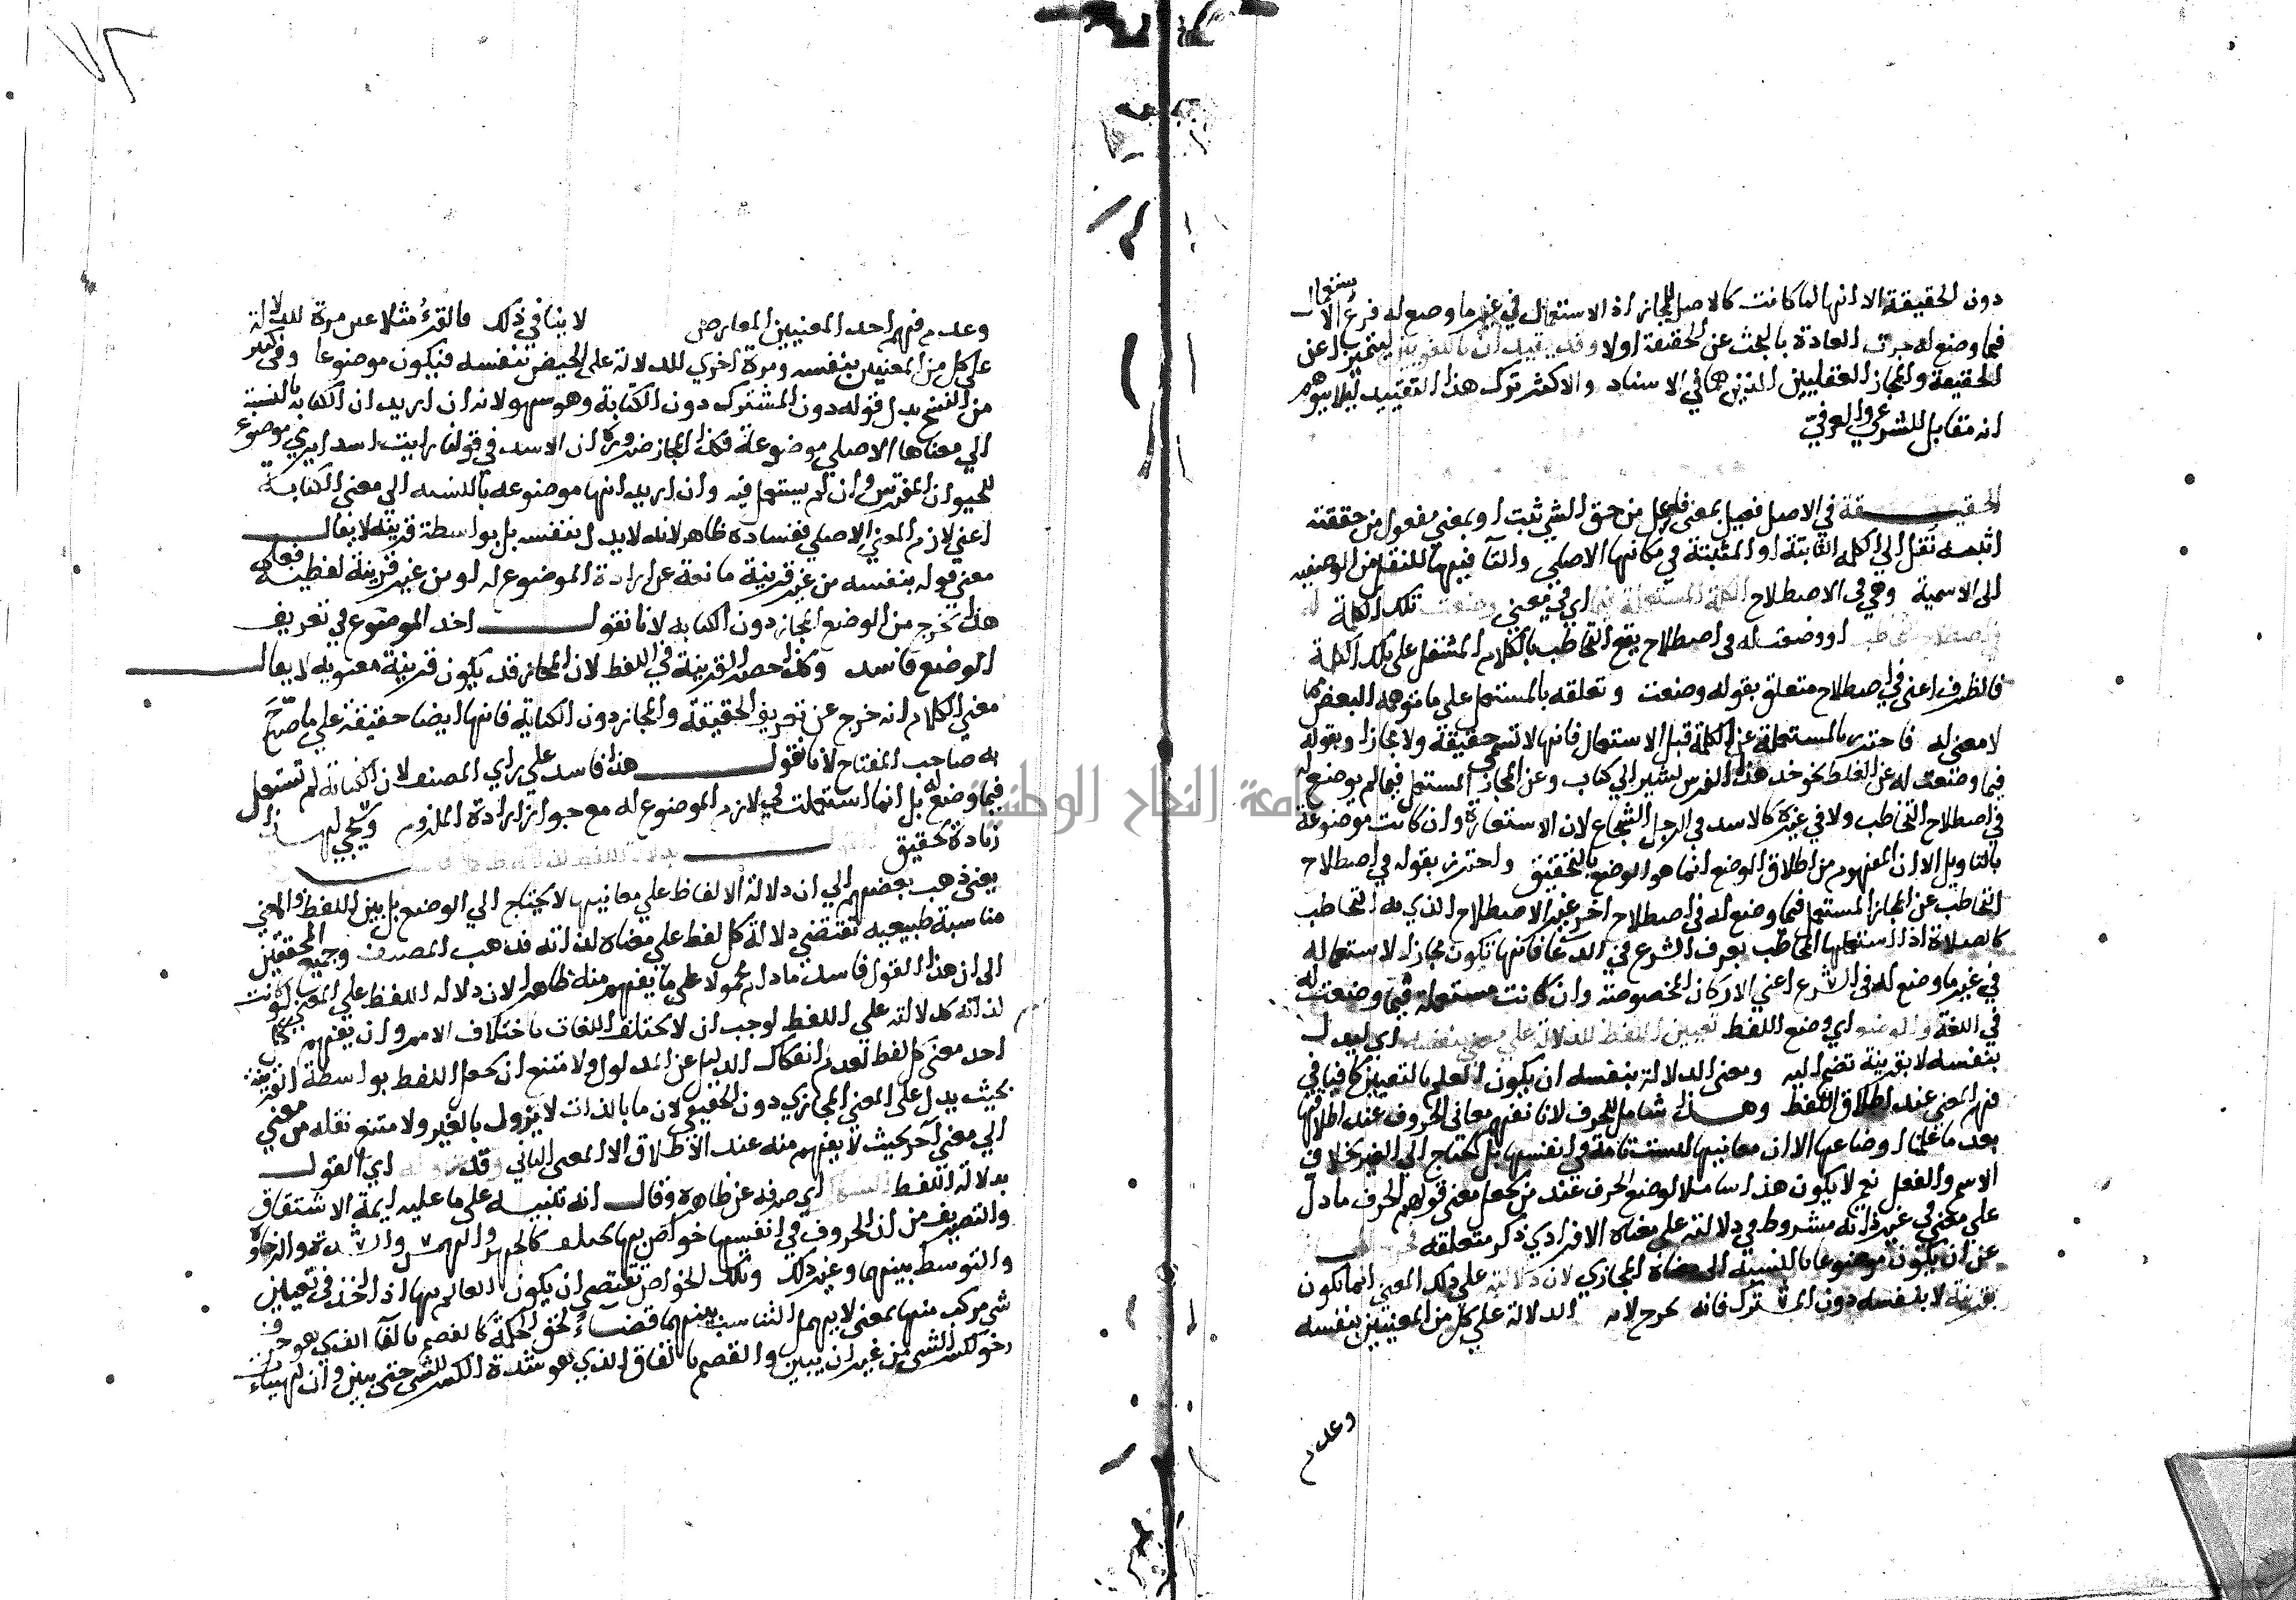 دون الحقيقة الا انها لما كانت كالاصل للمجاز اذ الاستعمال في غير ما وضع له فرع الاستعمال
فيما وضع له جرت العادة بالبحث عن الحقيقة اولا وقد يقيدان باللغويين ليتميزا عن
الحقيقة والمجاز العقليين الذين هما في الاسناد والاكثر ترك هذا التقييد ليلا يتوهم
انه مقابل للشرعي والعرفي
الحقيقة في الاصل فعيل بمعنى فاعل من حق الشي ثبت او بمعني مفعول من حققته
اثبته نقل الي الكلمه الثابتة او المثبتة في مكانها الاصلي والتا فيها للنقل من الوصفيه
الى الاسمية وهي في الاصطلاح الكلمة المستعملة فيما اي في معني وضعت تلك الكلمة له
في اصطلاح التخاطب او وضعت له في اصطلاح يقع التخاطب بالكلام المشتمل على تلك الكلمة
فالظرف اعني في اصطلاح متعلق بقوله وضعت وتعلقه بالمستعملة علي ما توهمه البعض مما
لا معنى له فاحترز بالمستعملة عن الكلمة قبل الاستعمال فانها لا تسمى حقيقة ولا مجازا وبقوله
فيما وضعت له عن الغلط نحو خذ هذا الفرس لشير الي كتاب وعن المجاز المستعمل فيما لم يوضع له
في اصطلاح التخاطب ولا في غيره كالاسد في الرجل الشجاع لان الاستعارة وان كانت موضوعة
بالتاويل الا ان المفهوم من اطلاق الوضع انما هو الوضع بالتحقيق واحترز بقوله في اصطلاح
التخاطب عن المجاز المستعمل فيما وضع له في اصطلاح اخر غير الاصطلاح الذي به التخاطب
كالصلاة اذا استعملها المخاطب بعرف الشرع في الدعا فانها تكون مجازا لاستعماله
في غير ما وضع له في الشرع اعني الاركان المخصوصة وان كانت مستعملة فيما وضعت له
في اللغة والوضع اي وضع اللفظ تعيين اللفظ للدلالة علي معنى بنفسه اي ليدل
بنفسه لا بقرينة تضم اليه ومعنى الدلالة بنفسه ان يكون العلم بالتعيين كافيا في
فهم المعنى عند اطلاق اللفظ وهذا شامل للحرف لانا نفهم معاني الحروف عند اطلاقها
بعد ما علمنا اوضاعها الا ان معانيها ليست تامة في انفسها بل تحتاج الي الغير بخلاف
الاسم والفعل نعم لا يكون هذا شاملا لوضع الحرف عند من يجعل معنى قولهم الحرف ما دل
علي معني في غيره انه مشروط في دلالته على معناه الافرادي ذكر متعلقه
عن ان يكون موضوعا بالنسبة الى معناه المجازي لان دلالته علي ذلك المعني انما تكون
بقرينة لا بنفسه دون المشترك فانه لم يخرج لان الدلالة علي كل من المعنيين بنفسه
وعدم
وعدم فهم احد المعنيين لعارض لا ينافي ذلك فالقرء مثلا عين مرة للدلالة
علي كل من المعنيين بنفسه ومرة اخري للدلالة على الحيض بنفسه فيكون موضوعا وفي كثير
من النسخ بدل قوله دون المشترك دون الكناية وهو سهو لانه ان اريد ان الكناية بالنسبة
الي معناها الاصلي موضوعة فكذا المجاز ضرورة ان الاسد في قولنا رايت اسدا يرمي موضوع
للحيوان المفترس وان لم يستعمل فيه وان اريد انها موضوعه بالنسبه الي معنى الكناية
اعني لازم المعني الاصلي ففساده ظاهر لانه لا يدل بنفسه بل بواسطة قرينه لا يقال
معني قوله بنفسه من غير قرينة مانعة عن ارادة الموضوع له او من غير قرينة لفظية فعلى
هذا يخرج من الوضع المجاز دون الكنايه لانا نقول اخذ الموضوع في تعريف
الوضع فاسد وكذا حصر القرينة في اللفظ لان المجاز قد يكون قرينة معنويه لا يقال
معني الكلام انه خرج عن تعريف الحقيقة والمجاز دون الكناية فانها ايضا حقيقة علي ما صرح
به صاحب المفتاح لانا نقول هذا فاسد علي راي المصنف لان الكناية لم تستعمل
فيما وضع له بل انما استعملت في لازم الموضوع له مع جواز ارادة الملزوم وسيجي لهذا
زيادة تحقيق
يعني ذهب بعضهم الي ان دلالة الالفاظ علي معانيها لا يحتاج الي الوضع بل بين اللفظ والمعني
مناسبة طبيعيه تقتضي دلالة كل لفظ علي معناه لذاته فذهب المصنف وجميع المحققين
الى ان هذا القول فاسد ما دام محمولا علي ما يفهم منه ظاهرا لان دلاله اللفظ علي المعني لو كانت
لذاته كدلالته علي اللافظ لوجب ان لا يختلف اللغات باختلاف الامم وان يفهم كل
احد معنى كل لفظ لعدم انفكاك الدليل عن المدلول ولامتنع ان يجعل اللفظ بواسطة القرينة
بحيث يدل على المعني المجازي دون الحقيقي لان ما بالذات لا يزول بالغير ولامتنع نقله من معني
الي معني اخر بحيث لا يفهم منه عند الاطلاق الا المعنى الثاني وقد اي القول
بدلالة اللفظ اي صرفه عن ظاهره وقال انه تنبيه على ما عليه ايمة الاشتقاق
والتصريف من ان الحروف في انفسها خواص بها تختلف كالجهر والهمس والشدة والرخاوة
والتوسط بينهما وغير ذلك وتلك الخواص تقتضي ان يكون العالم بها اذا اخذ في تعيين
شي مركب منها لمعنى لا يهمل التناسب بينهما قضاء لحق الحكمة كالفصم بالفا الذي هو حرف
رخو لكسر الشي من غير ان يبين والقصم بالقاف الذي هو شدة لكسر الشي حتى يبين وان لهيئات
جامعة النجاح الوطنية